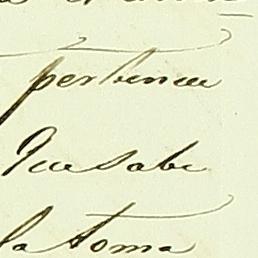 pertenece
Que sabe
la toma